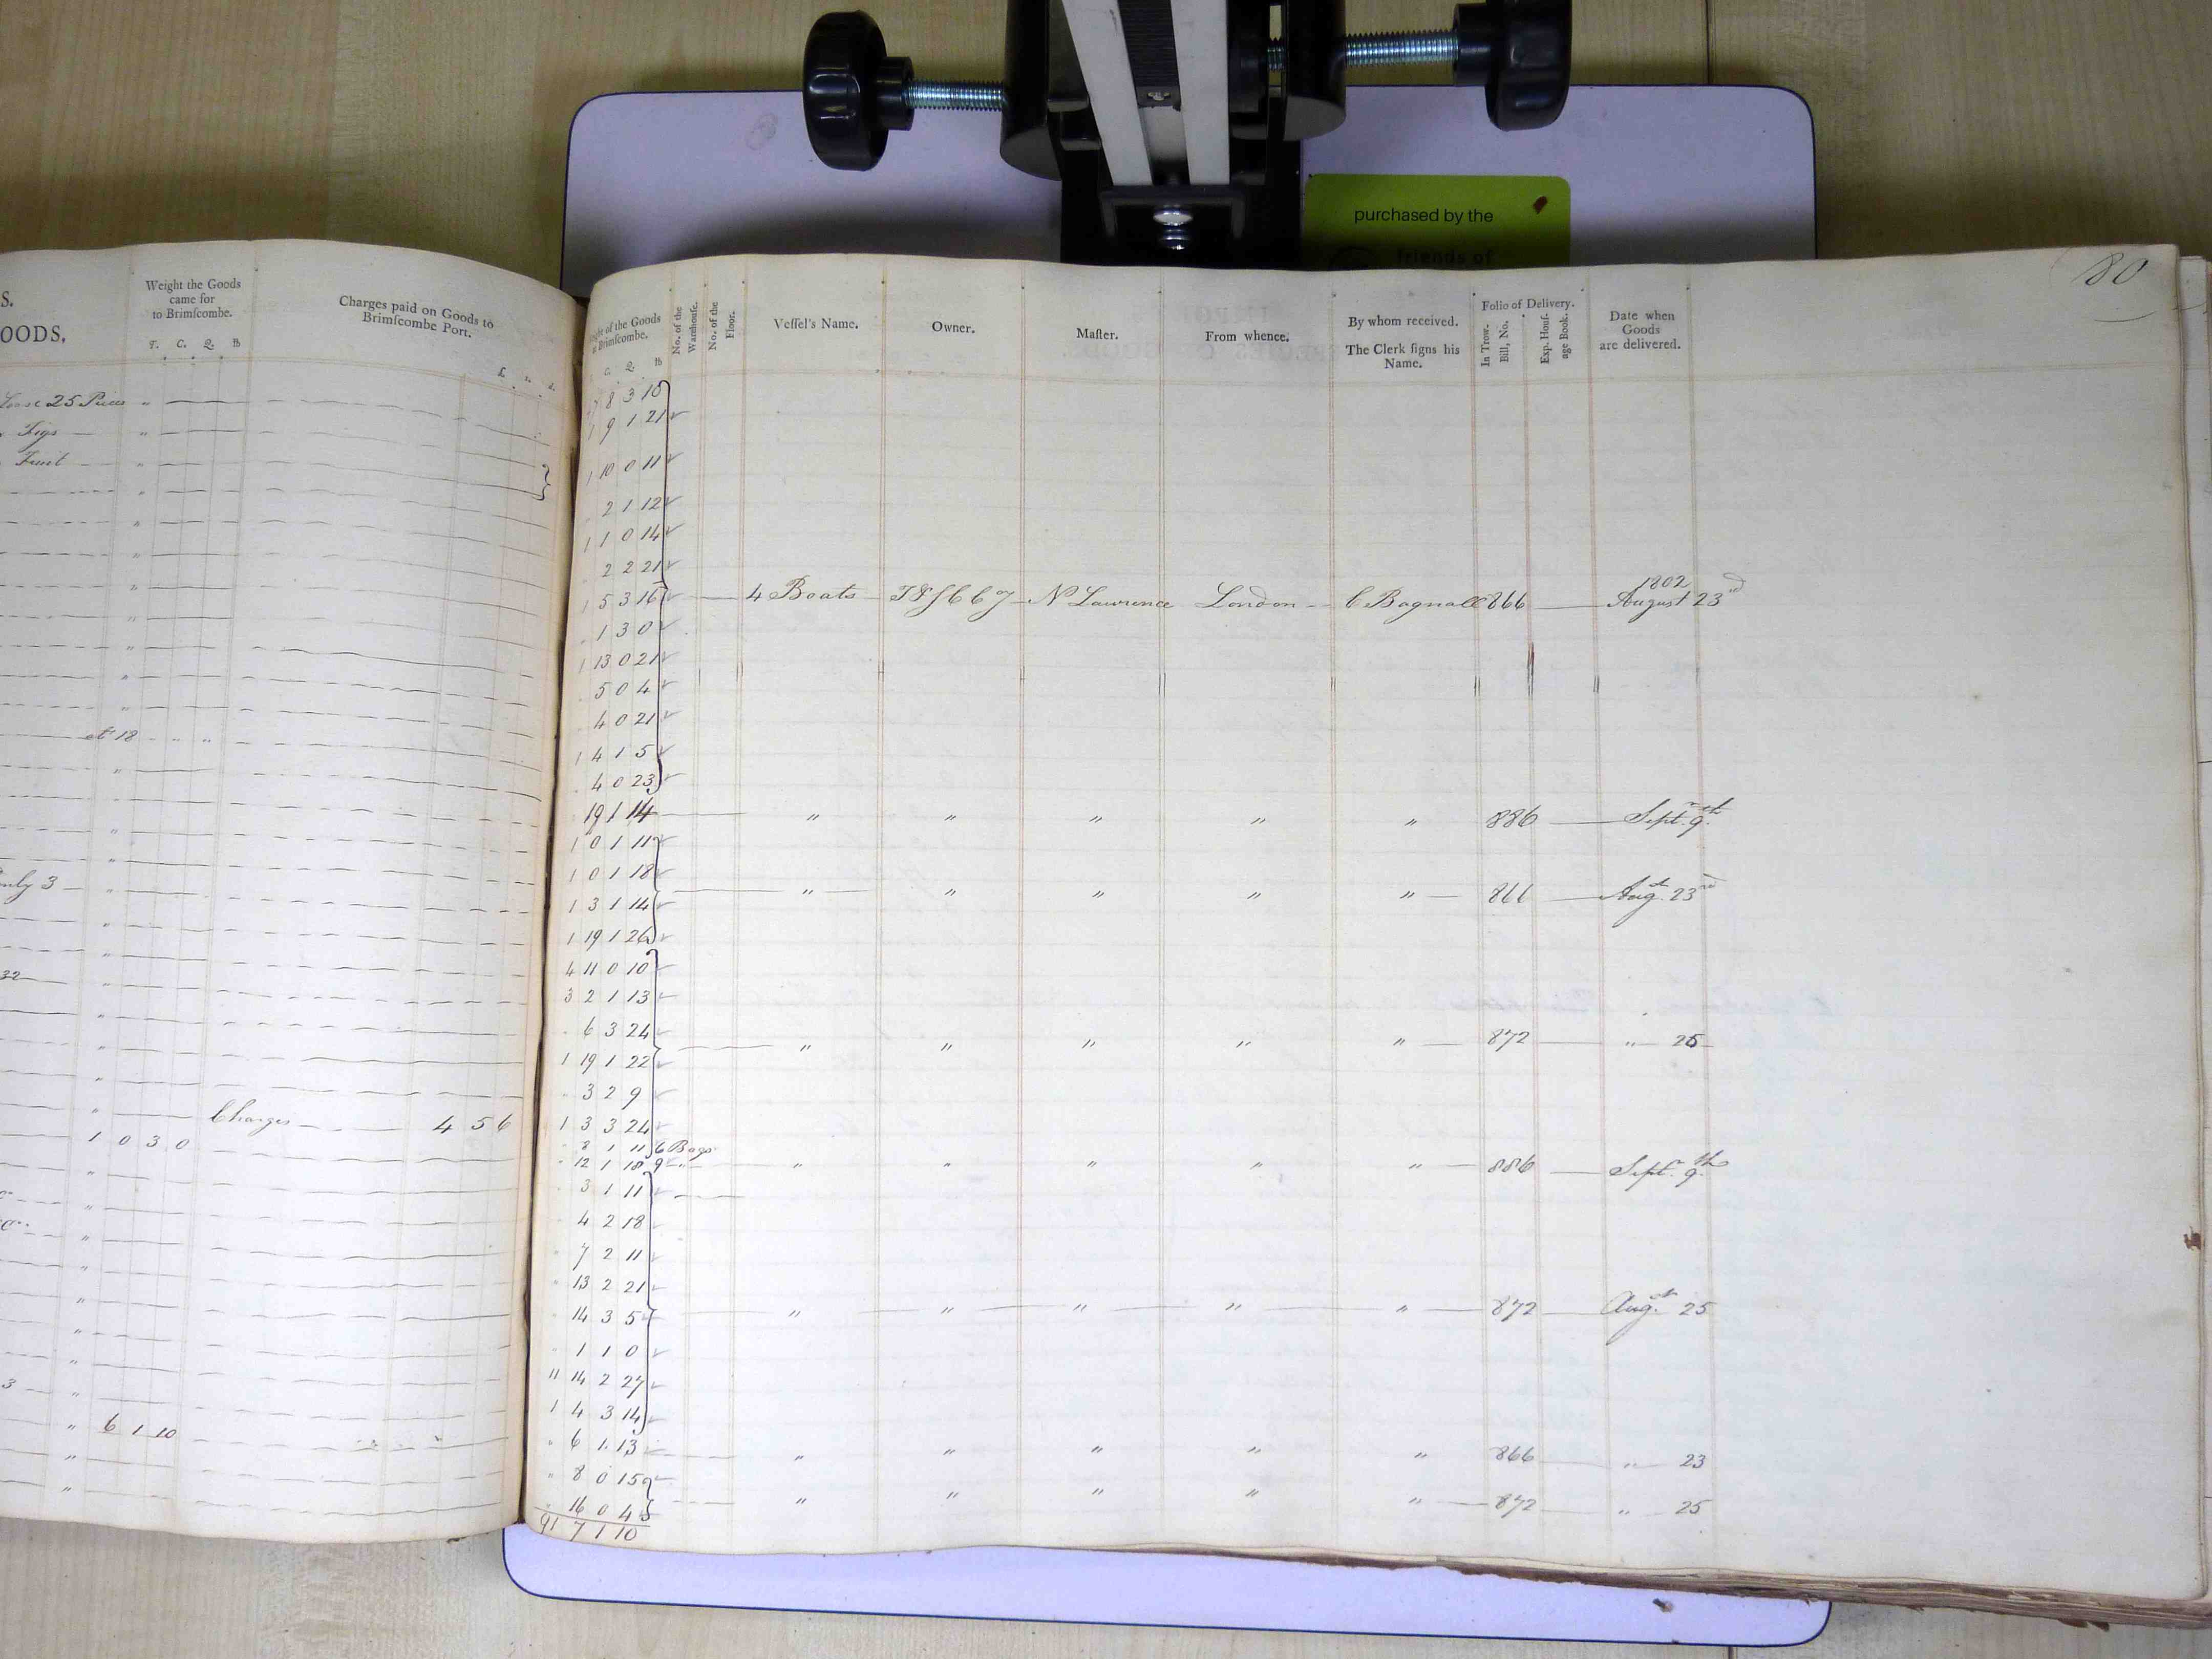 purchased by the
friends of
80
S.
OODS.
Weight the Goods
came for
to Brimſcombe.
T. C. Q. lb
Charges paid on Goods to
Brimſcombe Port.
£ s. d.
25 Pieces "
Figs "
Fruit "
at 18
only 3 "
32
" Charges 4 5 6
1 0 3 0
" 6 1 10
of the Goods
at Brimſcombe.
C. Q. lb
No. of the
Warehouſe.
No. of the
Floor.
Veſſel's Name.
Owner.
Maſter.
From whence.
By whom received.
The Clerk ſigns his
Name.
Folio of Delivery.
In Trow-
Bill, No.
Exp. Houſ-
age Book.
Date when
Goods
are delivered.
8 3 10
1 9 1 21
1 10 0 11
2 1 12
1 1 0 14
2 2 21
1802
1 5 3 16 4 Boats N Lawrence London C Bagnall 866 August 23rd
1 3 0
1 13 0 21
5 0 4
4 0 21
1 4 1 5
4 0 23
19 1 14 " " " " " 886 Sept. 9th
1 0 1 11
1 0 1 18
" " " " " 866 Augst 23rd
1 3 1 14
1 19 1 26
4 11 0 10
3 2 1 13
6 3 24
" " " " " 872 " 25
1 19 1 22
3 2 9
1 3 3 24
8 1 11 6 Bags
12 1 18 9 " " " " " " 886 Sept. 9th
3 1 11
4 2 18
7 2 11
" 13 2 21
14 3 5 " " " " " 872 Augst 25
" 1 1 0
11 14 2 27
1 4 3 14
" 6 1 13 " " " " " 866 " 23
" 8 0 15
" 16 0 4 " " " " " 872 " 25
91 7 1 10